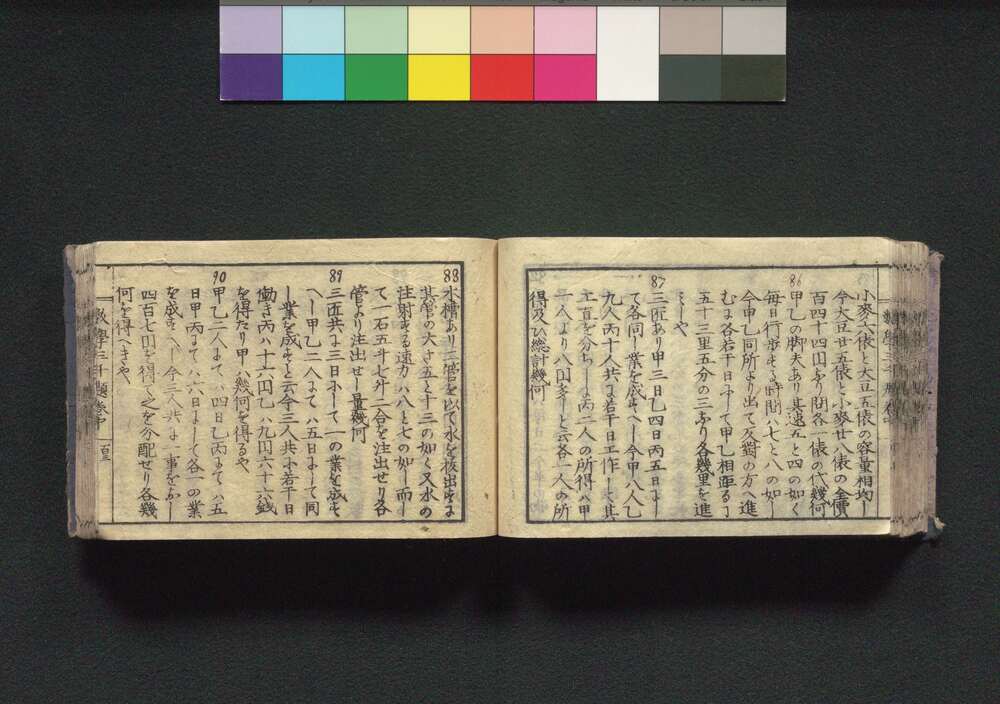 小麥六俵と大豆五俵の容量相均し
今大豆廿五俵と小麥廿八俵の全價
百四十四円なり問各一俵の代幾何
86
甲乙の脚夫あり其速五と四の如く
毎日行歩する時間ハ七と八の如し
今甲乙同所より出て反對の方へ進
むに各若干日にして甲乙相距る
五十三里五分の三なり各幾里を進
みしや
87
三匠あり甲三日乙四日丙五日にし
て各同一業を成すへし今甲八人乙
九人丙十人共に若干日工作して其
工直を分ちしに丙二人の所得ハ甲
一人より八円多しと云各一人の所
得及ひ總計幾何
88
水槽あり二管を以て水を抜出するに
其管の大さ五と十三の如く又水の
注射する速力ハ八と七の如し而し
て一石五斗七升一合を注出せり各
管より注出せし量幾何
89
三匠共に三日にして一の業を成す
へし甲乙二人にてハ五日にして同
一業を成すと云今三人共に若干日
働き丙ハ十六円乙ハ九円六十六銭
を得たり甲ハ幾何を得るや
90
甲乙二人にてハ四日乙丙にてハ五
日甲丙にてハ六日にして各一の業
を成すへし今三人共に一事をなし
四百七円を得て之を分配せり各幾
何を得へきや
數學三千題卷中